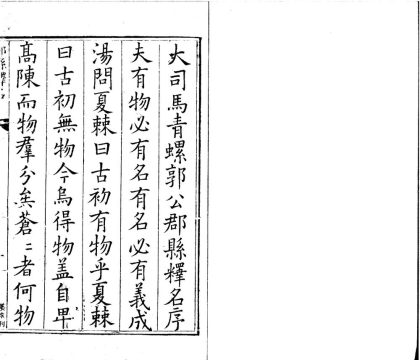 大司馬青螺郭公郡縣釋名序
夫有物必有名有名必有義成
湯問夏棘曰古初有物乎夏棘
曰古初無物今烏得物盖自卑
髙陳而物羣分矣蒼〻者何物